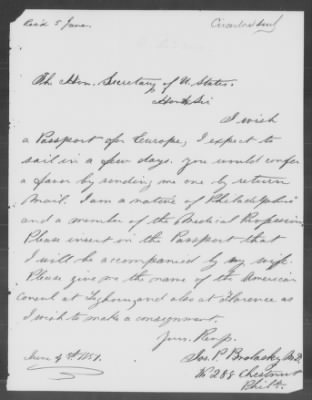 Rec'd 5 June.
Circular sent
The Hon. Secretary of U. States.
Hon'd Sir
I wish
a Passport for Europe, I expect to
sail in a few days. you would confer
a favor by sending me one by return
Mail. I am a native of Philadelphia
and a member of the Medical Profession
Please insert in the Passport that
I will be accompanied by my wife.
Please give me the name of the American
Consul at Leghorn, and also at Florence as
I wish to make a consignment.
Yours. Resp.
Jos. P. Brolasky M.D.
No 288 Chestnut
Phila.
June 4th 1851.